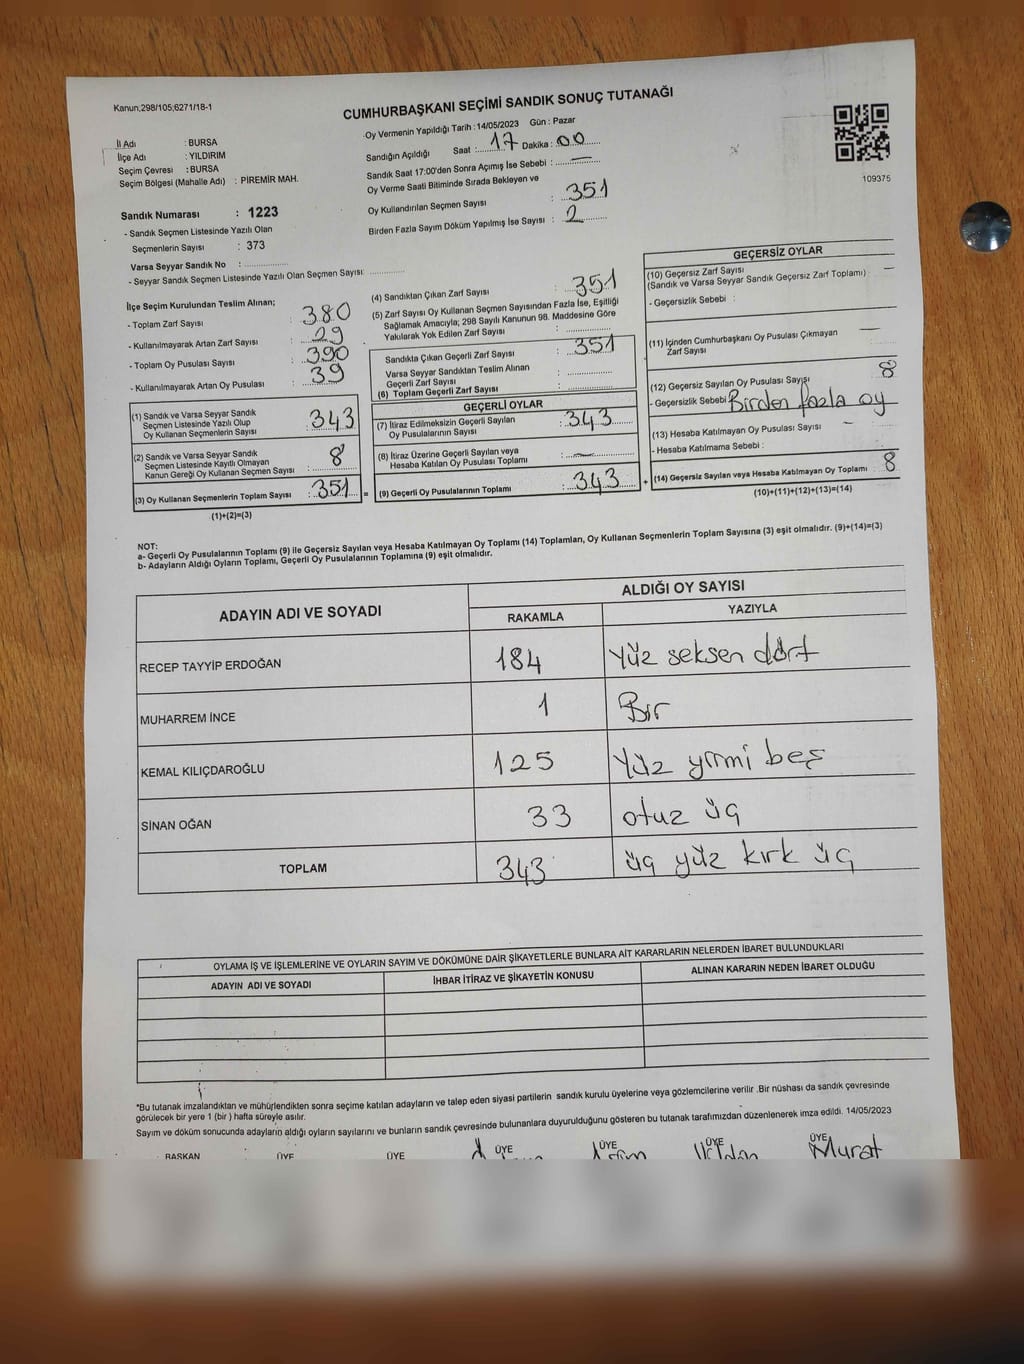 Kanun;298/105;6271/18-1
CUMHURBAŞKANI SEÇİMİ SANDIK SONUÇ TUTANAĞI
Oy Vermenin Yapıldığı Tarih : 14/05/2023 Gün : Pazar
İl Adı : BURSA
İlçe Adı : YILDIRIM
Seçim Çevresi : BURSA
Seçim Bölgesi (Mahalle Adı) : PİREMİR MAH.
Sandığın Açıldığı Saat : 17 Dakika : 00
Sandık Saat 17:00'den Sonra Açımış İse Sebebi : —
Oy Verme Saati Bitiminde Sırada Bekleyen ve
Oy Kullandırılan Seçmen Sayısı : 351
Birden Fazla Sayım Döküm Yapılmış İse Sayısı : 2
109375
Sandık Numarası : 1223
- Sandık Seçmen Listesinde Yazılı Olan
Seçmenlerin Sayısı : 373
Varsa Seyyar Sandık No :
- Seyyar Sandık Seçmen Listesinde Yazılı Olan Seçmen Sayısı:
İlçe Seçim Kurulundan Teslim Alınan;
- Toplam Zarf Sayısı : 380
- Kullanılmayarak Artan Zarf Sayısı : 29
- Toplam Oy Pusulası Sayısı : 390
- Kullanılmayarak Artan Oy Pusulası : 39
(1) Sandık ve Varsa Seyyar Sandık
Seçmen Listesinde Yazılı Olup
Oy Kullanan Seçmenlerin Sayısı : 343
(2) Sandık ve Varsa Seyyar Sandık
Seçmen Listesinde Kayıtlı Olmayan
Kanun Gereği Oy Kullanan Seçmen Sayısı : 8
(3) Oy Kullanan Seçmenlerin Toplam Sayısı : 351 =
(1)+(2)=(3)
(4) Sandıktan Çıkan Zarf Sayısı : 351
(5) Zarf Sayısı Oy Kullanan Seçmen Sayısından Fazla İse, Eşitliği
Sağlamak Amacıyla; 298 Sayılı Kanunun 98. Maddesine Göre
Yakılarak Yok Edilen Zarf Sayısı :
Sandıkta Çıkan Geçerli Zarf Sayısı : 351
Varsa Seyyar Sandıktan Teslim Alınan
Geçerli Zarf Sayısı :
(6) Toplam Geçerli Zarf Sayısı :
GEÇERLİ OYLAR
(7) İtiraz Edilmeksizin Geçerli Sayılan
Oy Pusulalarının Sayısı : 343
(8) İtiraz Üzerine Geçerli Sayılan veya
Hesaba Katılan Oy Pusulası Toplamı : —
(9) Geçerli Oy Pusulalarının Toplamı : 343 +
GEÇERSİZ OYLAR
(10) Geçersiz Zarf Sayısı —
(Sandık ve Varsa Seyyar Sandık Geçersiz Zarf Toplamı) :
- Geçersizlik Sebebi :
(11) İçinden Cumhurbaşkanı Oy Pusulası Çıkmayan —
Zarf Sayısı
(12) Geçersiz Sayılan Oy Pusulası Sayışı 8
- Geçersizlik Sebebi Birden fazla oy
(13) Hesaba Katılmayan Oy Pusulası Sayısı —
- Hesaba Katılmama Sebebi :
(14) Geçersiz Sayılan veya Hesaba Katılmayan Oy Toplamı : 8
(10)+(11)+(12)+(13)=(14)
NOT:
a- Geçerli Oy Pusulalarının Toplamı (9) ile Geçersiz Sayılan veya Hesaba Katılmayan Oy Toplamı (14) Toplamları, Oy Kullanan Seçmenlerin Toplam Sayısına (3) eşit olmalıdır. (9)+(14)=(3)
b- Adayların Aldığı Oyların Toplamı, Geçerli Oy Pusulalarının Toplamına (9) eşit olmalıdır.
ADAYIN ADI VE SOYADI
ALDIĞI OY SAYISI
RAKAMLA YAZIYLA
RECEP TAYYİP ERDOĞAN 184 Yüz seksen dört
MUHARREM İNCE 1 Bir
KEMAL KILIÇDAROĞLU 125 Yüz yirmi beş
SİNAN OĞAN 33 otuz üç
TOPLAM 343 üç yüz kırk üç
OYLAMA İŞ VE İŞLEMLERİNE VE OYLARIN SAYIM VE DÖKÜMÜNE DAİR ŞİKAYETLERLE BUNLARA AİT KARARLARIN NELERDEN İBARET BULUNDUKLARI
ADAYIN ADI VE SOYADI İHBAR İTİRAZ VE ŞİKAYETİN KONUSU ALINAN KARARIN NEDEN İBARET OLDUĞU
*Bu tutanak imzalandıktan ve mühürlendikten sonra seçime katılan adayların ve talep eden siyasi partilerin sandık kurulu üyelerine veya gözlemcilerine verilir .Bir nüshası da sandık çevresinde
görülecek bir yere 1 (bir ) hafta süreyle asılır.
Sayım ve döküm sonucunda adayların aldığı oyların sayılarını ve bunların sandık çevresinde bulunanlara duyurulduğunu gösteren bu tutanak tarafımızdan düzenlenerek imza edildi. 14/05/2023
BAŞKAN ÜYE ÜYE ÜYE ÜYE ÜYE ÜYE
Murat